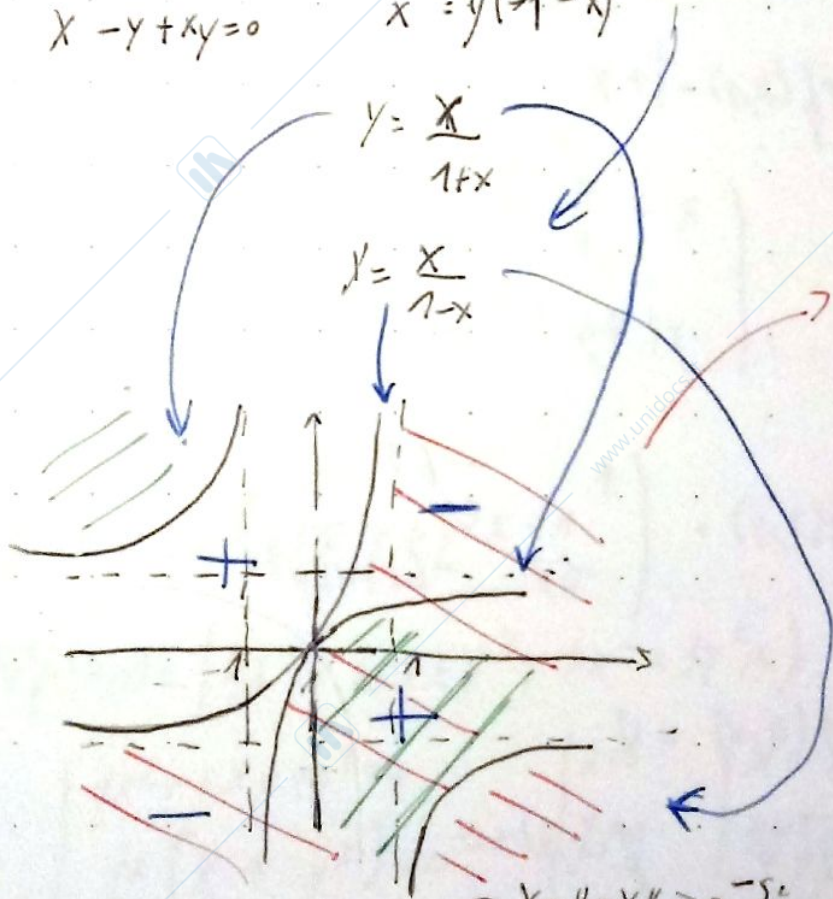 x - y + xy = 0
y = x / 1+x
y = x / 1-x
+
-
-1
1
+
-
www.unidocs